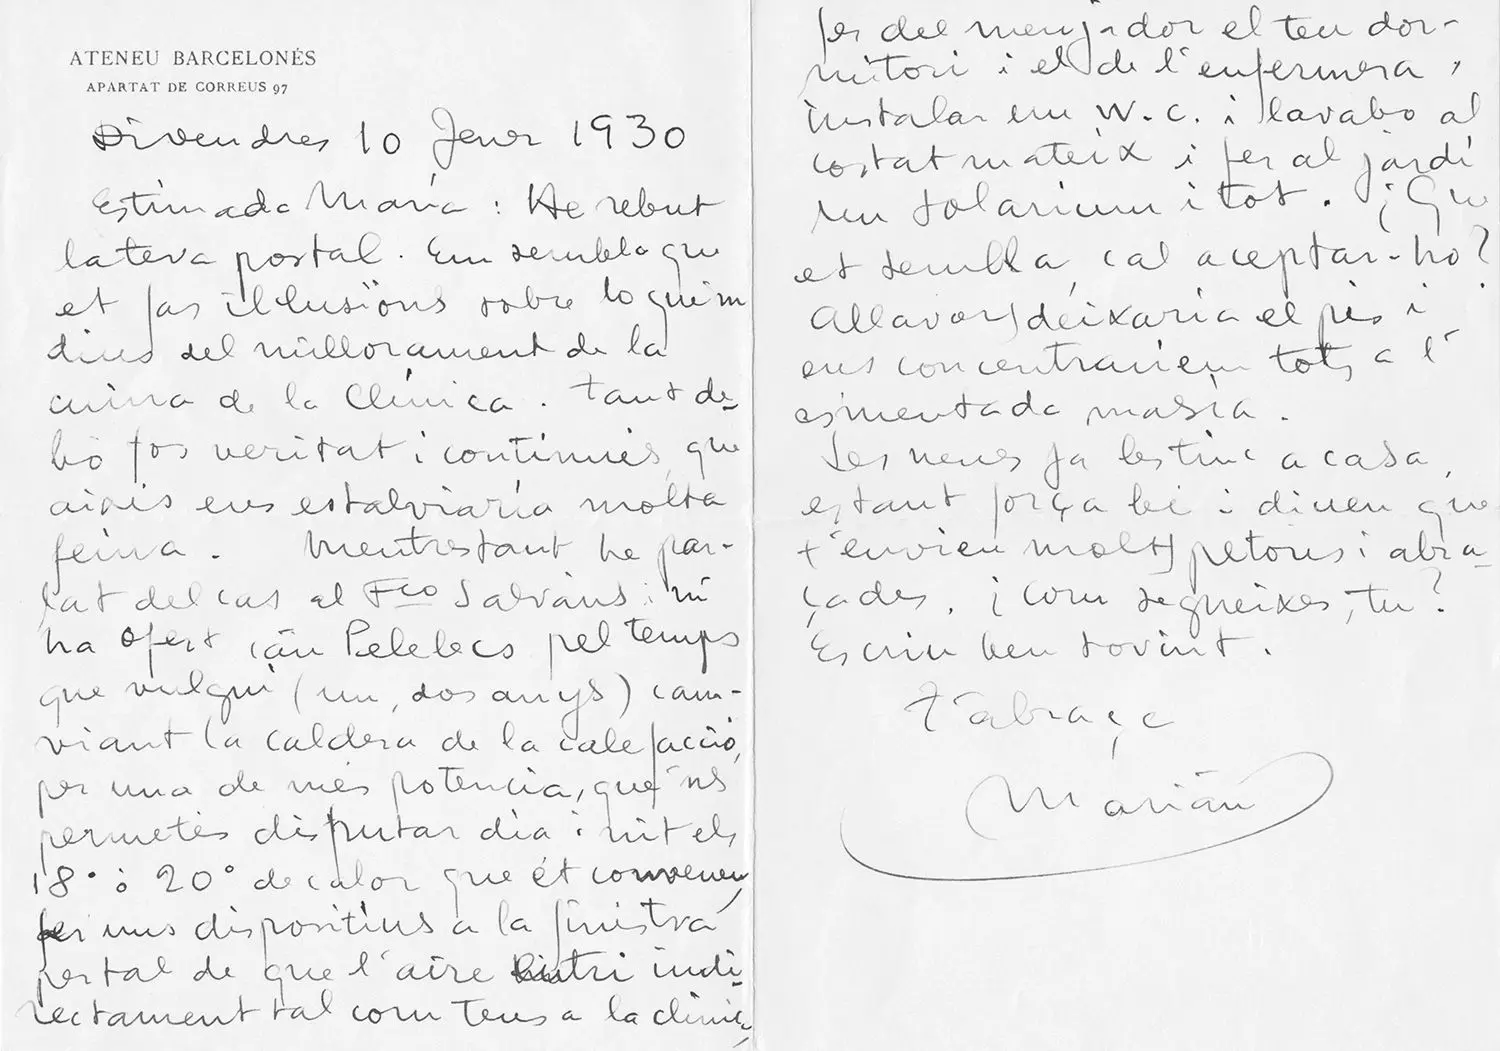 ATENEU BARCELONÉS
APARTAT DE CORREUS 97
Divendres 10 Jener 1930
Estimada María: He rebut
la teva postal. Em sembla que
et fas il·lusións sobre lo que'm
dius del millorament de la
cuina de la Clínica. Tant de-
bò fos veritat i continués, que
aixís ens estalviaría molta
feina. Mentrestant he par-
lat del cas al Fco Salváns i m'
ha ofert cân Pelelecs pel temps
que vulgui (un, dos anys) cam-
viant la caldera de la calefacció,
per una de més potencia, que'ns
permetés disfrutar dia i nit els
18° ò 20° de calor que ét convenen,
fer uns dispositius a la finistra
per tal de que l'aire entri indi-
rectament tal com tens a la clinica,
fer del menjador el teu dor-
mitori i el de l'enfermera,
instalar un W.C. i lavabo al
costat mateix i fer al jardí
un solarium i tot. ¿Que
et sembla, cal aceptar-ho?
Allavors deixaria el pis i
ens concentrariem tots a l'
esmentada masía.
Les nenes ja les tinc a casa,
estant força bé i diuen que
t'envien molts petons i abra-
çades. ¿Com segueixes, tu?
Escriu ben sovint.
T'abraça
Marián